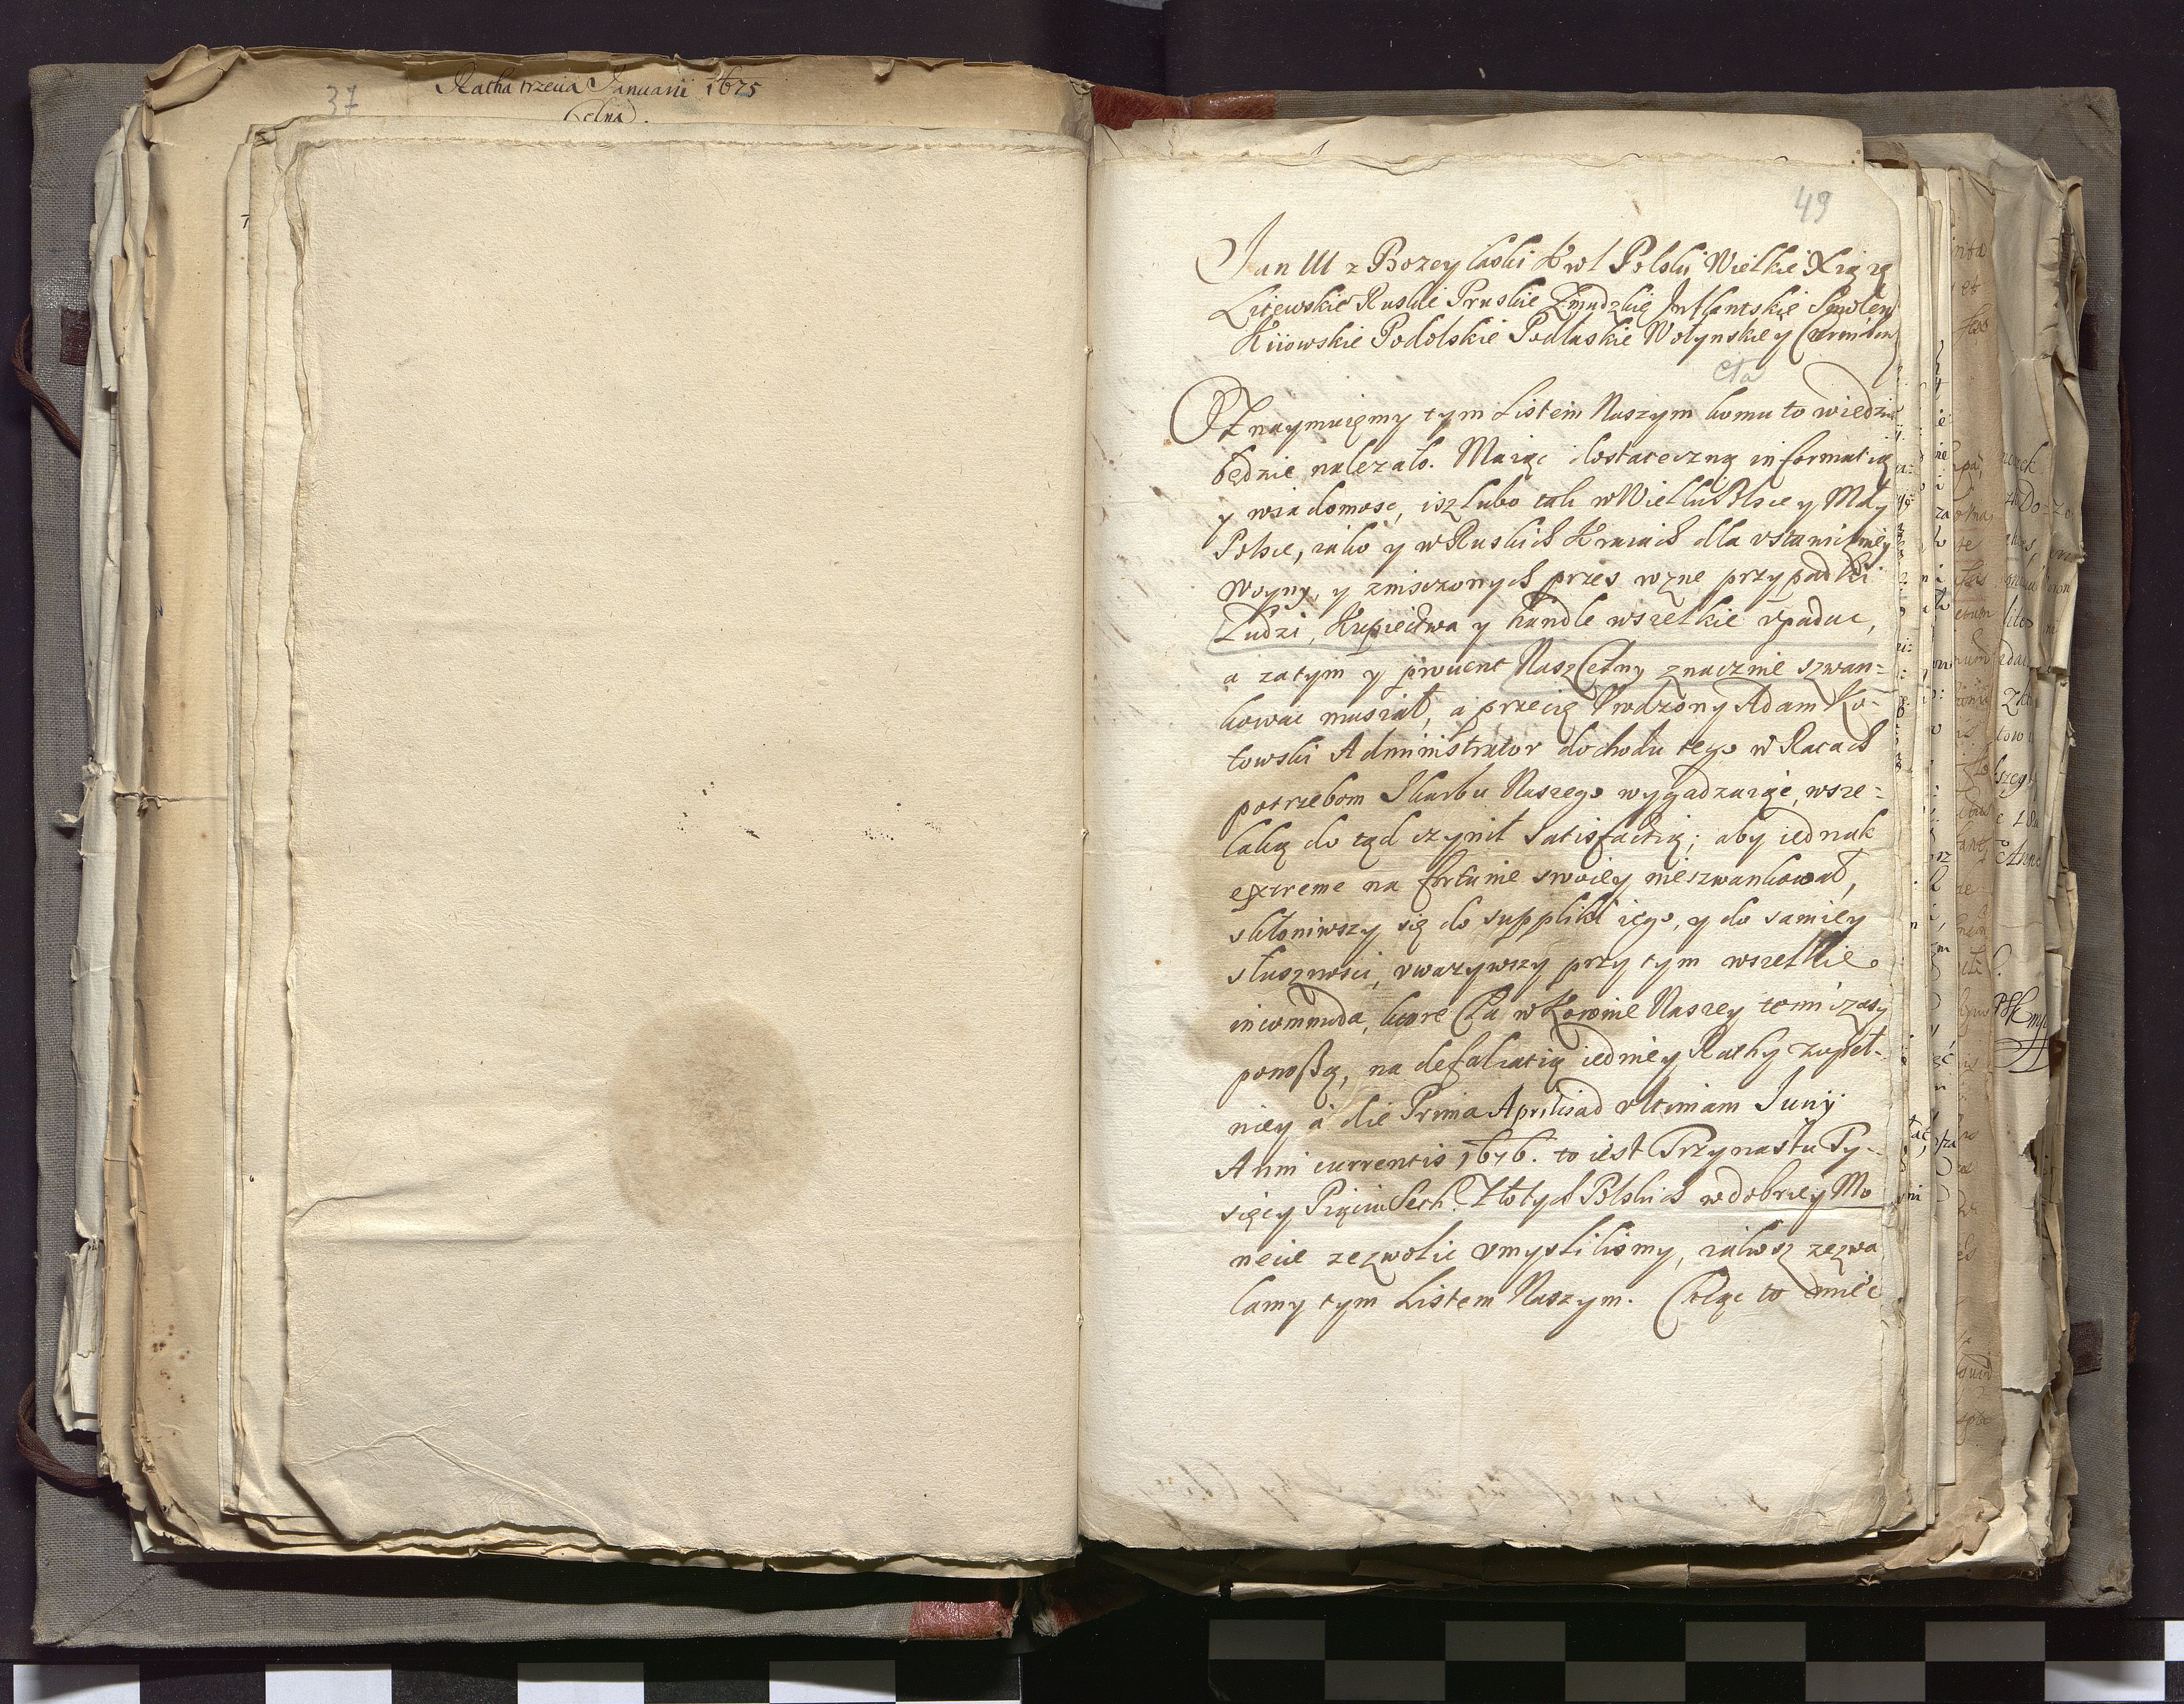 37
Ratha trzecia Januarii 1675
Celna.
49
Jan III z Bozey łaski Krol Polski Wielkie Xiąze
Litewskie Ruskie Pruskie Zmudzkie Inflantskie Smolen
Kiiowskie Podolskie Podlaskie Wołynskie y Czernihow
cła
Oznaymuięmy tym Listem Naszym komu to wiedziec
będzie nalezało. Maiąc dostateczną informatią
y wiadomosc, isz lubo tak w Wielki Polsce y Mały
Polsce, iako y w Ruskich Kraiach dla vstawiczney
woyny, y zniszczonych przes rozne przypadki
Ludzi, Kupiectwa y handle wszelkie vpadac,
a zatym y prouent Nasz Celny znacznie szwan=
kowac musiał, a przecię Vrodzony Adam Ko=
towski Administrator dochodu tego w Ratach
potrzebom Skarbu Naszego wygadzaiąc, wsze=
laką do tąd czynił satisfactią; aby iednak
extreme na fortunie swoiey nieszwankował,
skłoniwszy się do suppliki iego, y do samiey
słusznosci, vwazywszy przy tym wszelkie
incommoda, ktore Cła w Koronie Naszey temi czasy
ponoszą, na defalcatią iedniey Rathy zupeł-
niey à die Prima Aprilis ad vltimam Junij
Anni currentis 1676. to iest Trzynastu Ty-
sięcy Pięciu Seth Złotych Polskich w dobrey Mo
necie zezwolic vmysliliśmy, iakosz zezwa
lamy tym Listem Naszym. Chcąc to miec